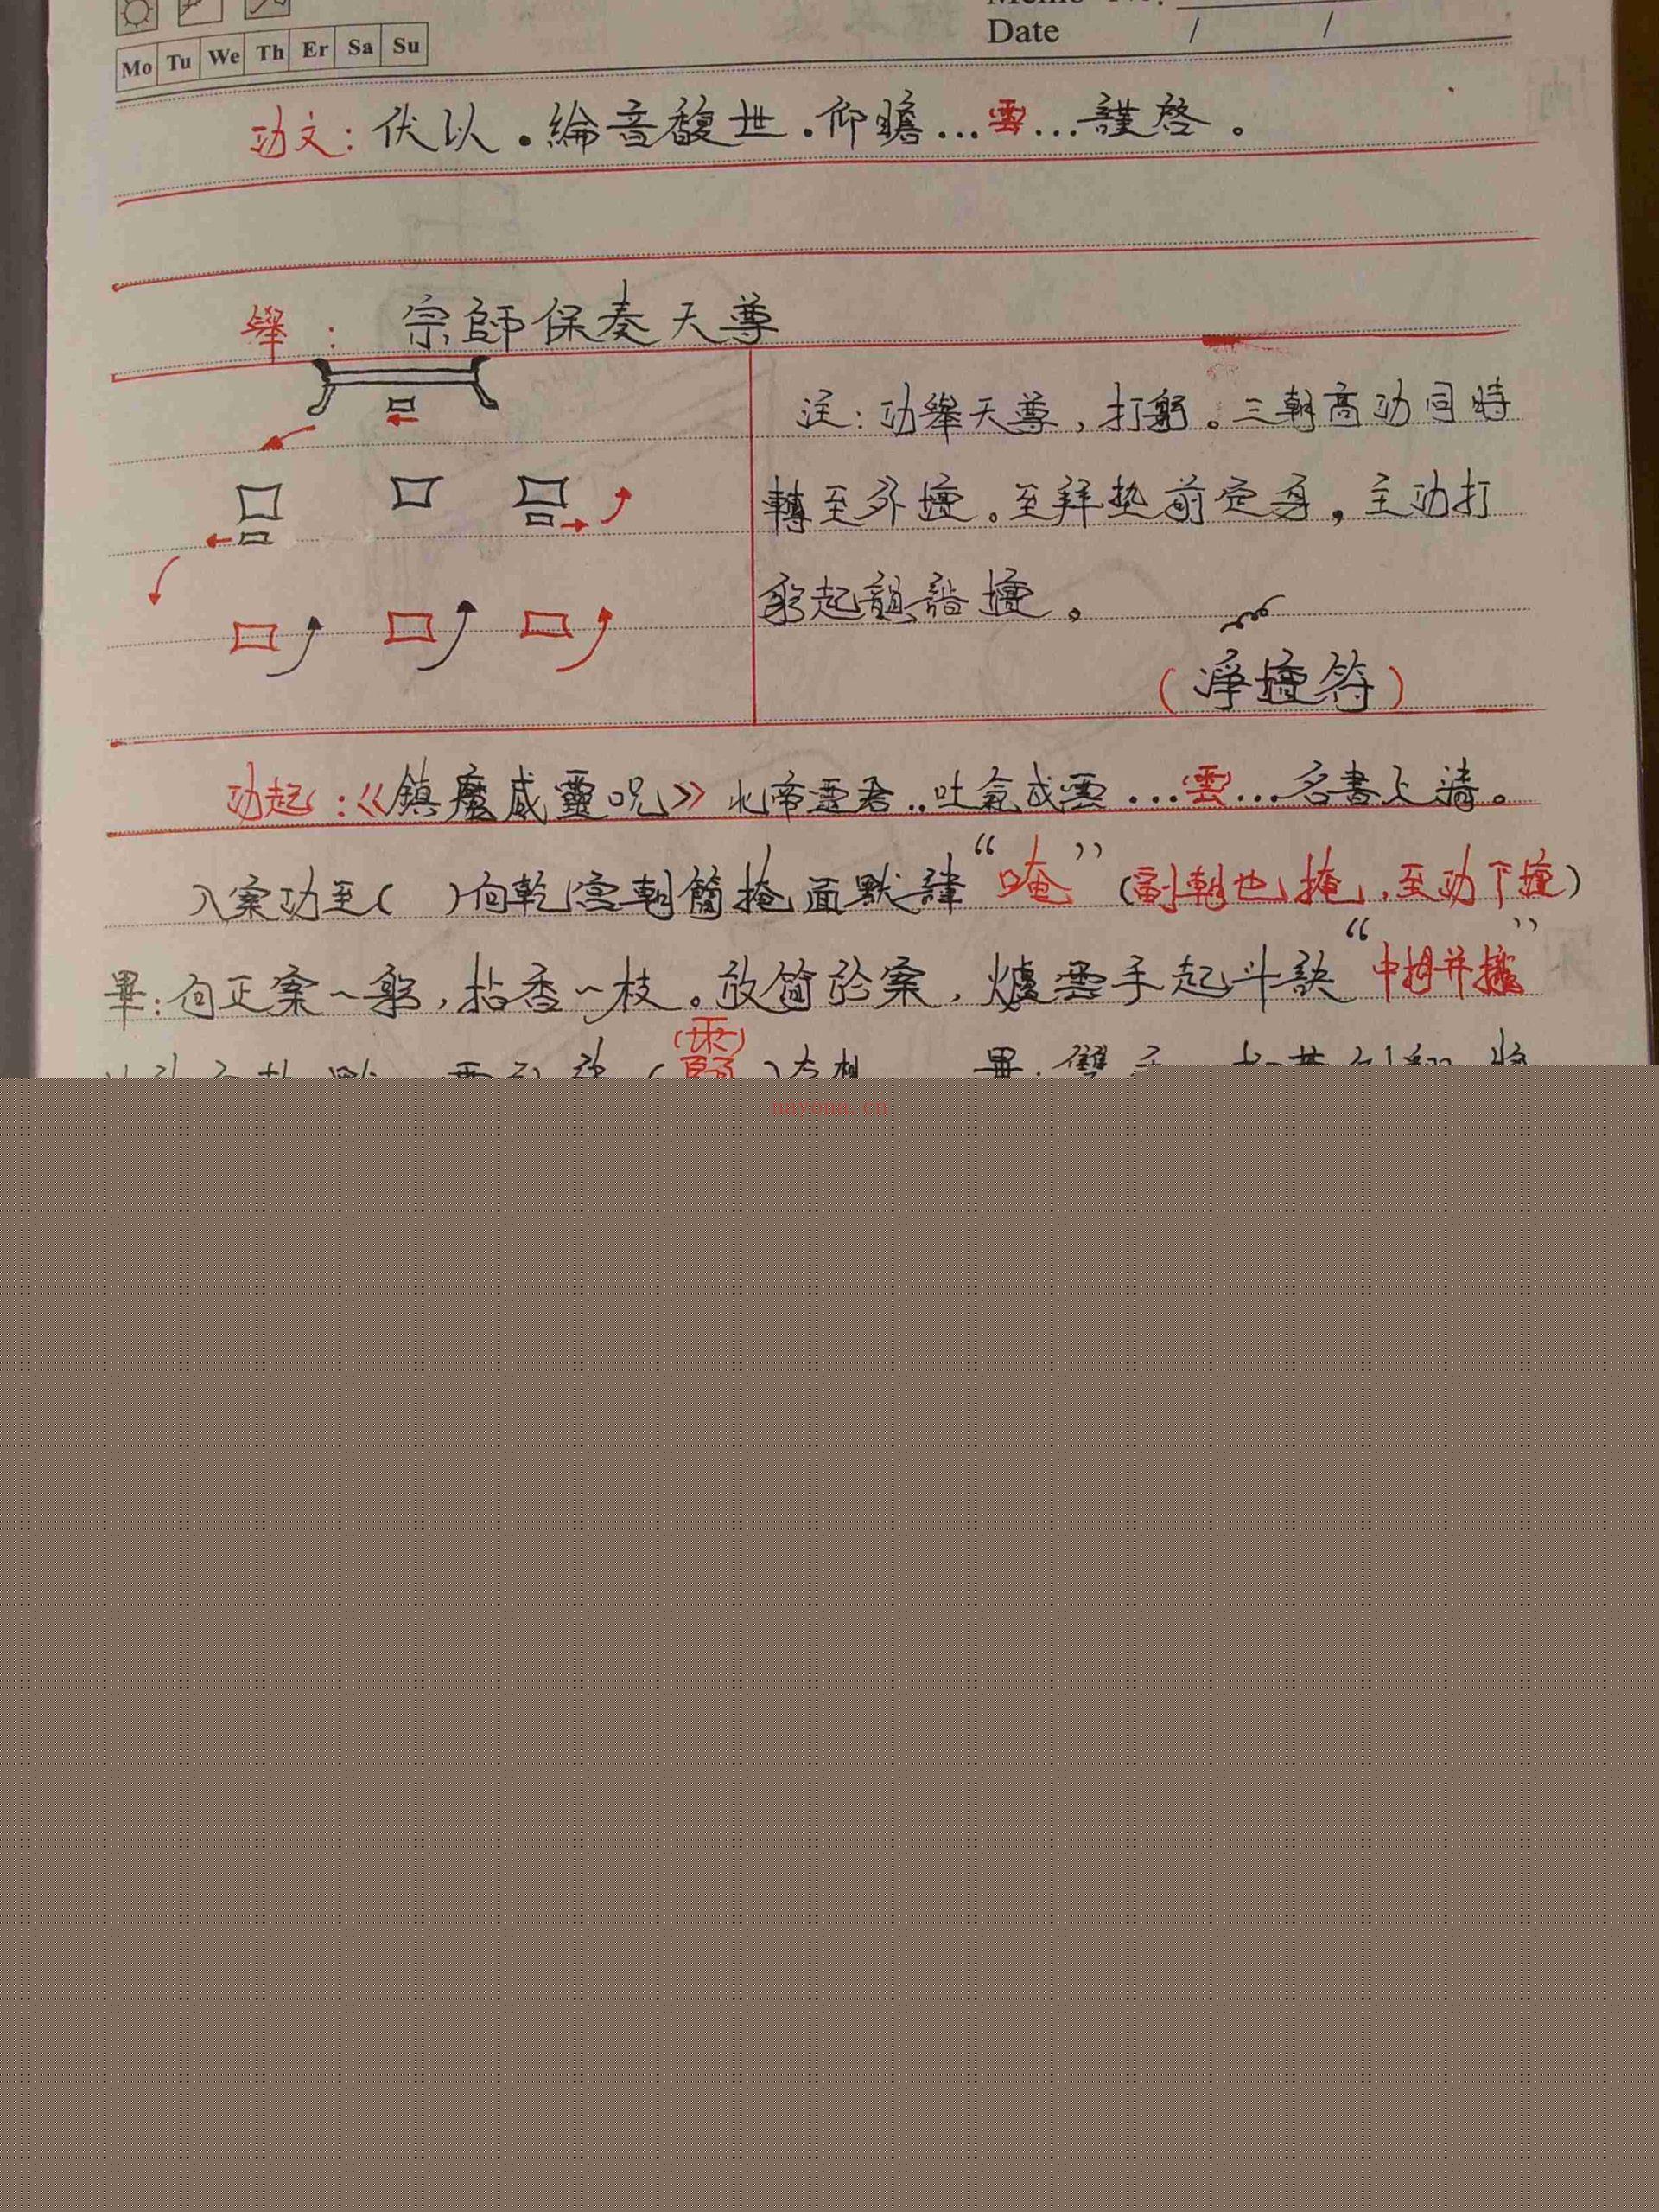 Date / /
Mo Tu We Th Er Sa Su
功文：伏以．綸音馥世．仰瞻…雲…謹啓。
舉：宗師保奏天尊
注：功舉天尊，打躬。三朝高功同時
轉至外壇。至拜垫前定身，主功打
躬起韻詣壇。
（淨壇符）
功起：《鎮魔威靈咒》北帝靈君..吐氣成雲…（雲）…名書上清。
入案功至（ ）向乾宮朝簡掩面默諱“唵”（副朝也掩，至功下壇）
畢：向正案一躬，拈香一枝。放簡於案，爐雲手起斗訣“中拇并攏”
nayona.cn